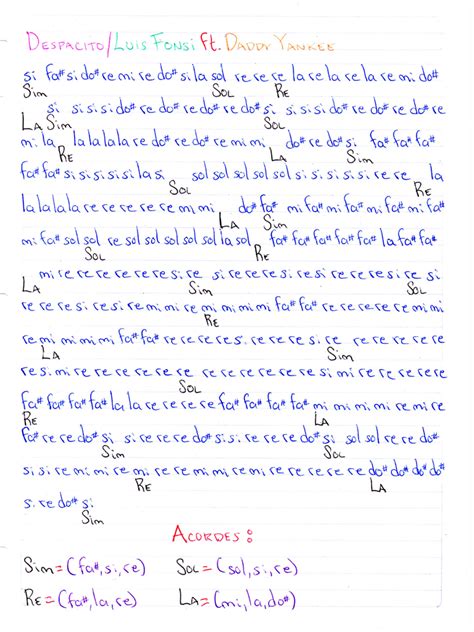 DESPACITO/LUIS FONSI ft. DADDY YANKEE
si fa# si do# re mi re do# si la sol re re re la re la re la re mi do#
Sim SOL RE
si si si si do# re do# re do# re do# si si si si do# re do# re do# re
LA Sim SOL
mi la la la la la re do# re do# re mi mi do# re do# si fa# fa# fa#
RE LA Sim
fa# fa# si si si si si la si sol sol sol sol sol si si si si si re re la
SOL RE
la la la la re re re re re mi mi do# fa# mi fa# mi fa# mi fa# mi fa#
LA Sim
mi fa# sol sol re sol sol sol sol sol la sol fa# fa# fa# fa# fa# la fa# fa#
SOL RE
mi re re re re re re si re si re re re si re si re re re re si re si
LA Sim SOL
re re re si re si re mi mi re mi mi mi mi fa# fa# re re re re mi mi
RE
re mi mi mi mi fa# fa# re re re re si re re re si re re re re re re
LA Sim
re si mi re re re re re re re re re re re si mi re re re re re
SOL
fa# fa# fa# fa# la la re re re re fa# fa# fa# fa# mi mi mi re mi re
RE LA
fa# re re do# si si re re re do# si si re re re do# si sol sol re re do#
Sim SOL
si si re mi mi re mi re re mi re mi re mi re re re re re do# do# do# do#
RE LA
si re do# si
Sim
ACORDES:
Sim=(fa#,si,re) SOL=(sol,si,re)
RE=(fa#,la,re) LA=(mi,la,do#)